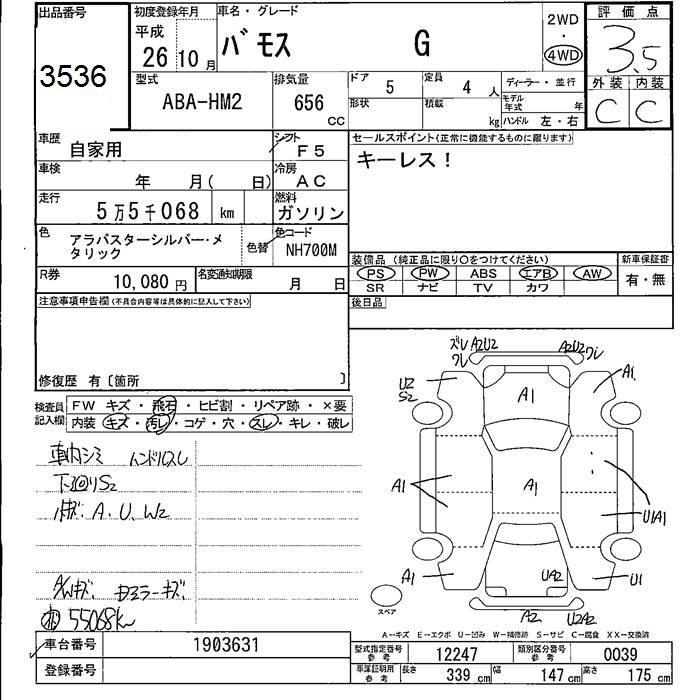 出品番号
3536
初度登録年月
平成
26 10 月
車名・グレード
バモス G
2WD
・
4WD
評価点
3.5
外装 内装
C C
型式
ABA-HM2
排気量
656 CC
ドア 5
定員 4 人
形状
積載 kg
ディーラー・並行
モデル年式 年
ハンドル 左・右
車歴
自家用
シフト
F5
車検
年 月( 日)
冷房
AC
走行
5万5千068 km
燃料
ガソリン
色
アラバスターシルバー・メ
タリック
色替
色コード
NH700M
R券
10,080 円
名変通知期限
月 日
セールスポイント(正常に機能するものに限ります)
キーレス!
装備品(純正品に限り○をつけてください)
PS PW ABS エアB AW
SR ナビ TV カワ
新車保証書
有・無
後日品
注意事項申告欄(不具合内容等は具体的に記入して下さい)
修復歴 有〔箇所 〕
検査員
記入欄
FW キズ・飛石・ヒビ割・リペア跡・×要
内装 キズ・汚レ・コゲ・穴・スレ・キレ・破レ
車内シミ ハンドルスレ
下廻りS2
A.U.W2
A/Wキズ ドアミラーキズ
55068km
ズレ A2U2
ワレ
A2U2 ワレ
U2
S2
A1
A1
A1
A1
A1
U1A1
A1
UA2
U1
A2
U2A2
スペア
A-キズ E-エクボ U-凹み W-補修跡 S-サビ C-腐食 XX-交換済
車台番号
1903631
登録番号
型式指定番号
参考
12247
類別区分番号
参考
0039
車庫証明用
参考
長さ 339 cm
幅 147 cm
高さ 175 cm